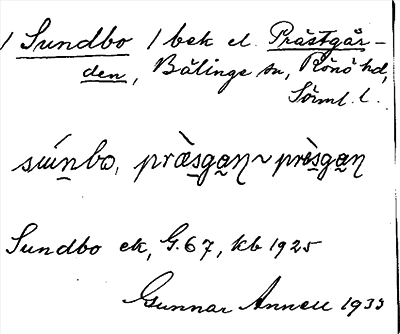 1 Sundbo 1 bek el. Prästgår-
den, Bälinge sn, Rönö hd,
Sörml. l.
sɯ́n̲bo, præ̀s̲ga̲ŋ ~ près̲ga̲ŋ
Sundbo ek, G. 67, kb 1925
Gunnar Annell 1933